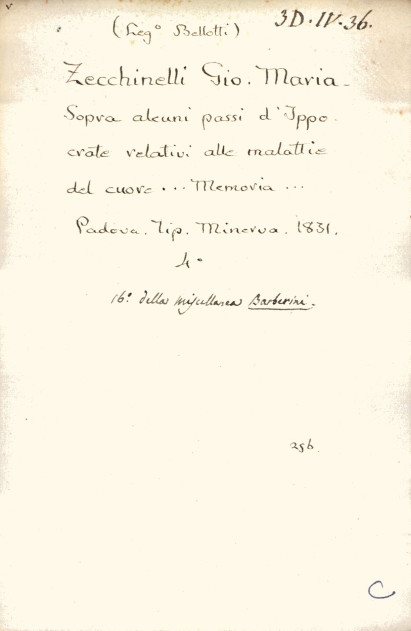 (Leg° Bellotti)
3D.IV.36.
Zecchinelli Gio. Maria.
Sopra alcuni passi d'Ippo-
crate relativi alle malattie
del cuore ... Memoria ...
Padova. Tip. Minerva. 1831.
4°
16° della miscellanea Barberini.
256.
C